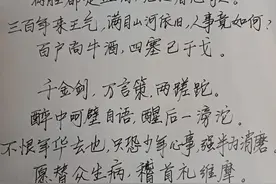 三百年来王气，满目山河依旧，人事竟如何？
百户尚牛酒，四塞已干戈。
千金剑，万言策，两蹉跎。
醉中呵壁自语，醒后一滂沱。
不恨年华去也，只恐少年心事，强半为消磨。
愿替众生病，稽首礼维摩。